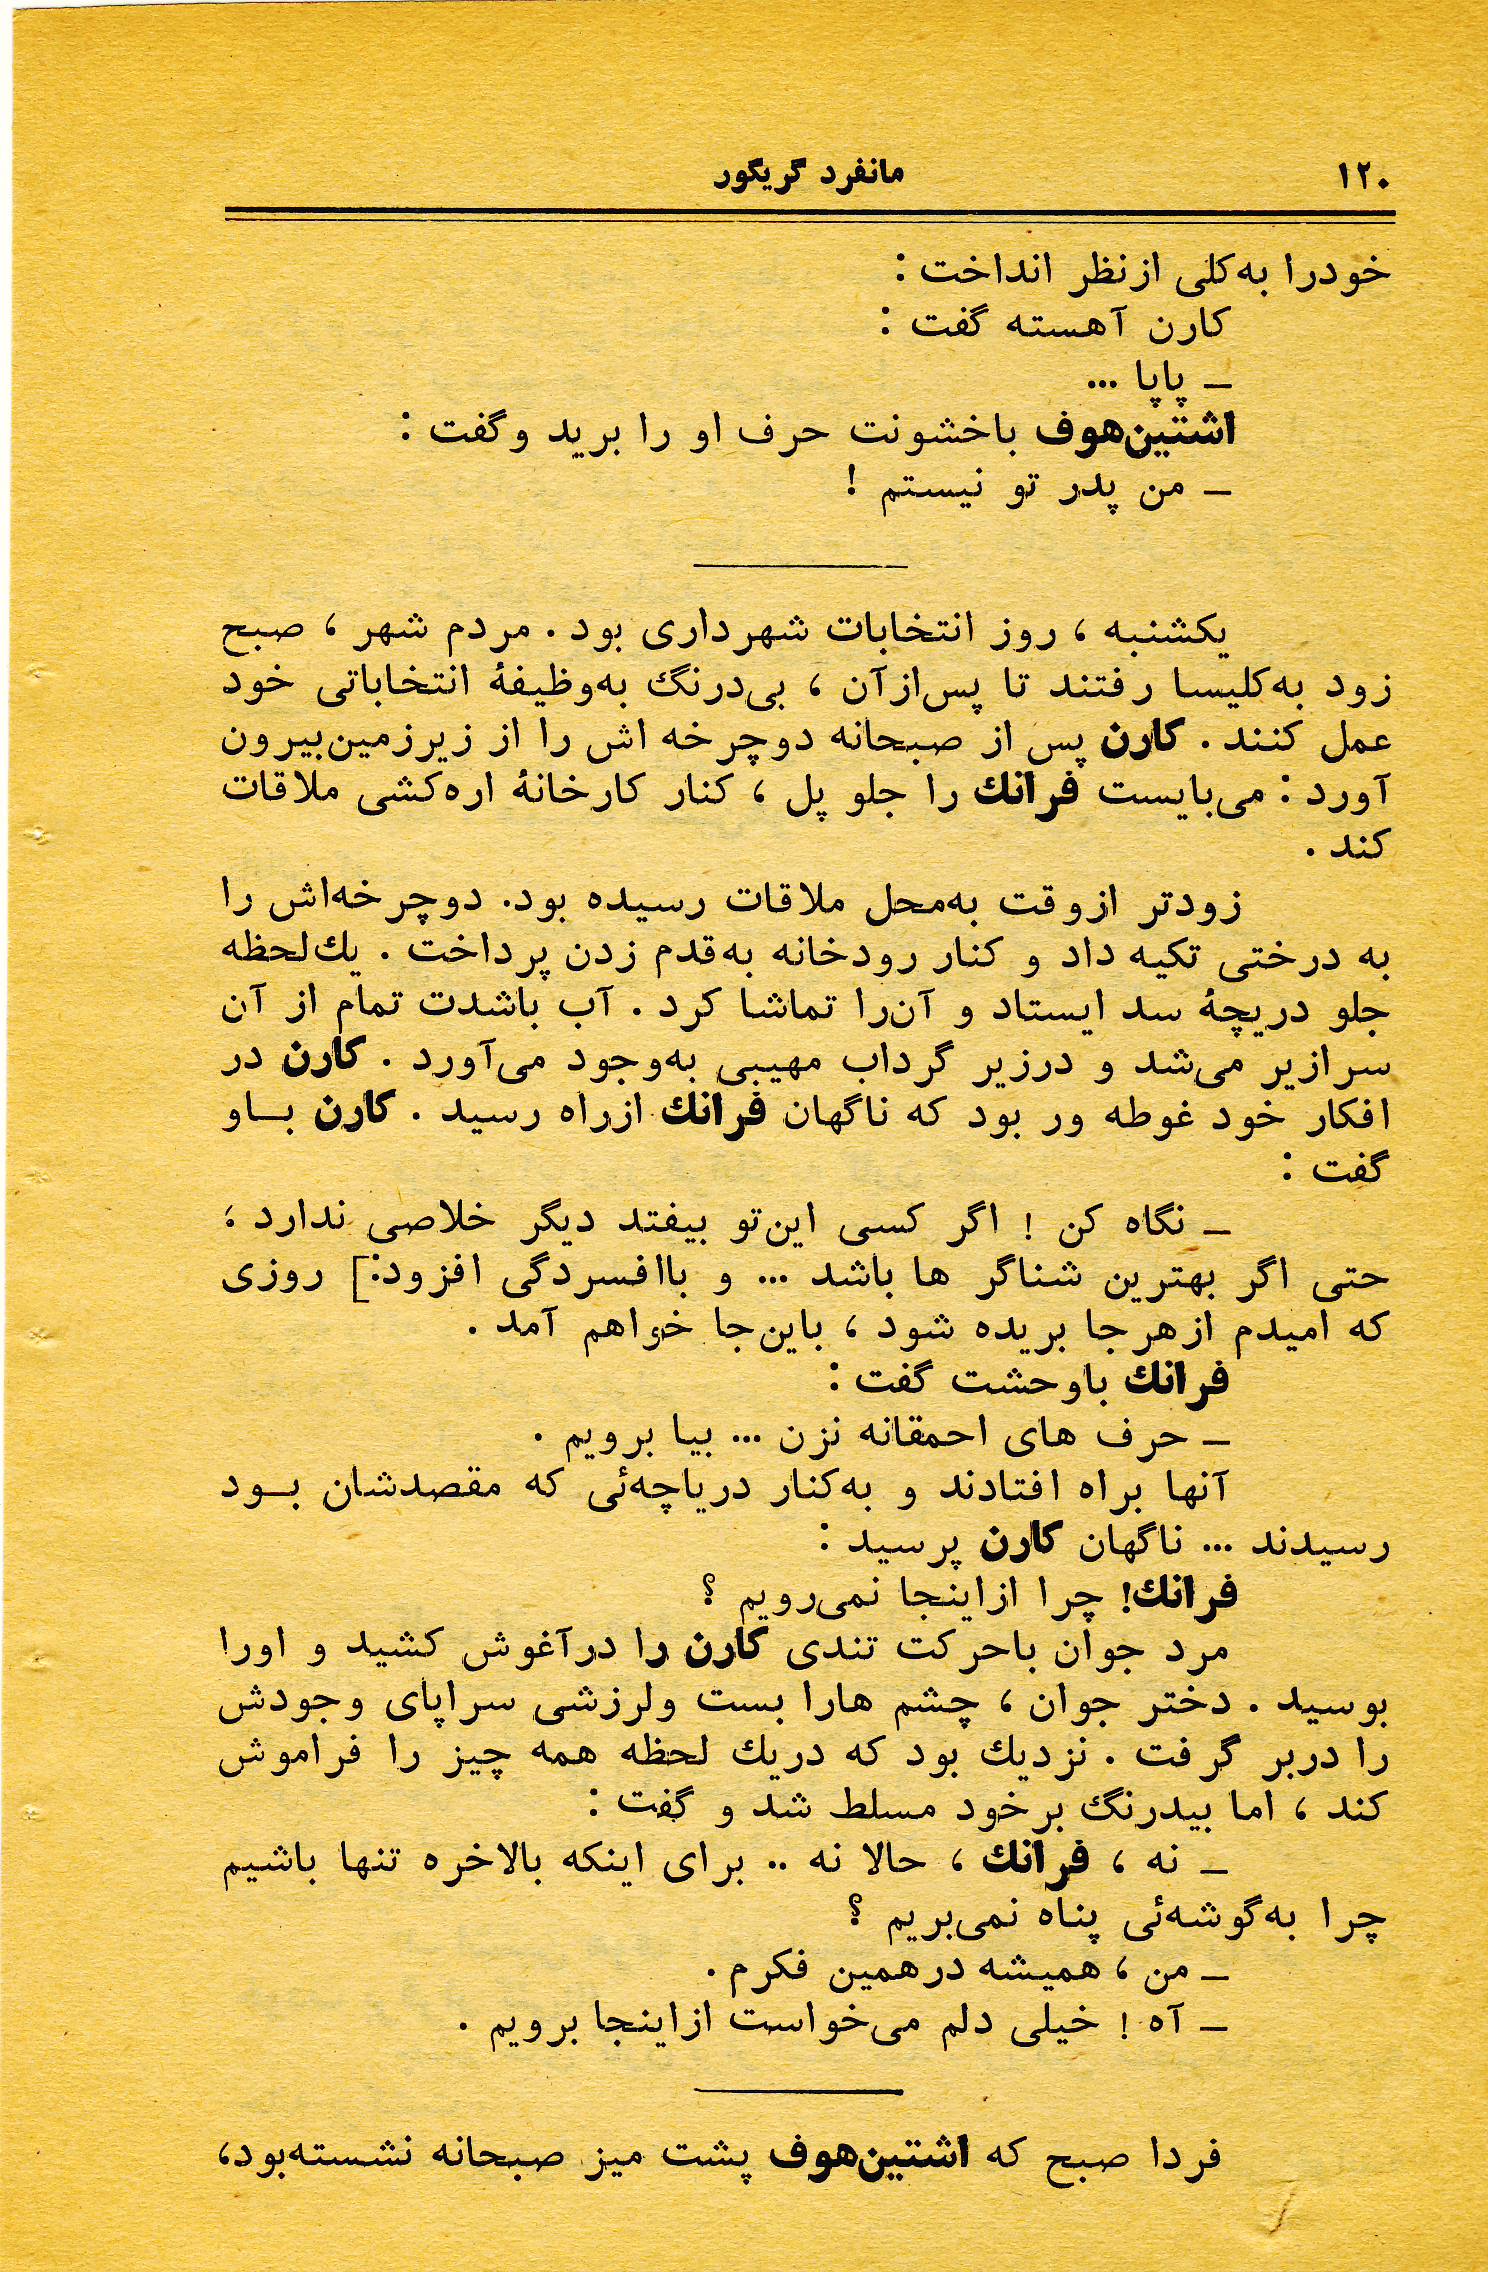 ۱۲۰ مانفرد گریگور
خودرا به‌کلی ازنظر انداخت :
کارن آهسته گفت :
ـ پاپا ...
اشتین‌هوف باخشونت حرف او را برید وگفت :
ـ من پدر تو نیستم !
یکشنبه ، روز انتخابات شهرداری بود . مردم شهر ، صبح
زود به‌کلیسا رفتند تا پس‌ازآن ، بی‌درنگ به‌وظیفهٔ انتخاباتی خود
عمل کنند . کارن پس از صبحانه دوچرخه اش را از زیرزمین‌بیرون
آورد : می‌بایست فرانك را جلو پل ، کنار کارخانهٔ اره‌کشی ملاقات
کند .
زودتر ازوقت به‌محل ملاقات رسیده بود. دوچرخه‌اش را
به درختی تکیه داد و کنار رودخانه به‌قدم زدن پرداخت . یك‌لحظه
جلو دریچهٔ سد ایستاد و آن‌را تماشا کرد . آب باشدت تمام از آن
سرازیر می‌شد و درزیر گرداب مهیبی به‌وجود می‌آورد . کارن در
افکار خود غوطه ور بود که ناگهان فرانك ازراه رسید . کارن بـاو
گفت :
ـ نگاه کن ! اگر کسی این‌تو بیفتد دیگر خلاصی ندارد ،
حتی اگر بهترین شناگر ها باشد ... و باافسردگی افزود:] روزی
که امیدم ازهرجا بریده شود ، باین‌جا خواهم آمد .
فرانك باوحشت گفت :
ـ حرف های احمقانه نزن ... بیا برویم .
آنها براه افتادند و به‌کنار دریاچه‌ئی که مقصدشان بـود
رسیدند ... ناگهان کارن پرسید :
فرانك! چرا ازاینجا نمی‌رویم ؟
مرد جوان باحرکت تندی کارن را درآغوش کشید و اورا
بوسید . دختر جوان ، چشم هارا بست ولرزشی سراپای وجودش
را دربر گرفت . نزدیك بود که دریك لحظه همه چیز را فراموش
کند ، اما بیدرنگ برخود مسلط شد و گفت :
ـ نه ، فرانك ، حالا نه .. برای اینکه بالاخره تنها باشیم
چرا به‌گوشه‌ئی پناه نمی‌بریم ؟
ـ من ، همیشه درهمین فکرم .
ـ آه ! خیلی دلم می‌خواست ازاینجا برویم .
فردا صبح که اشتین‌هوف پشت میز صبحانه نشسته‌بود،